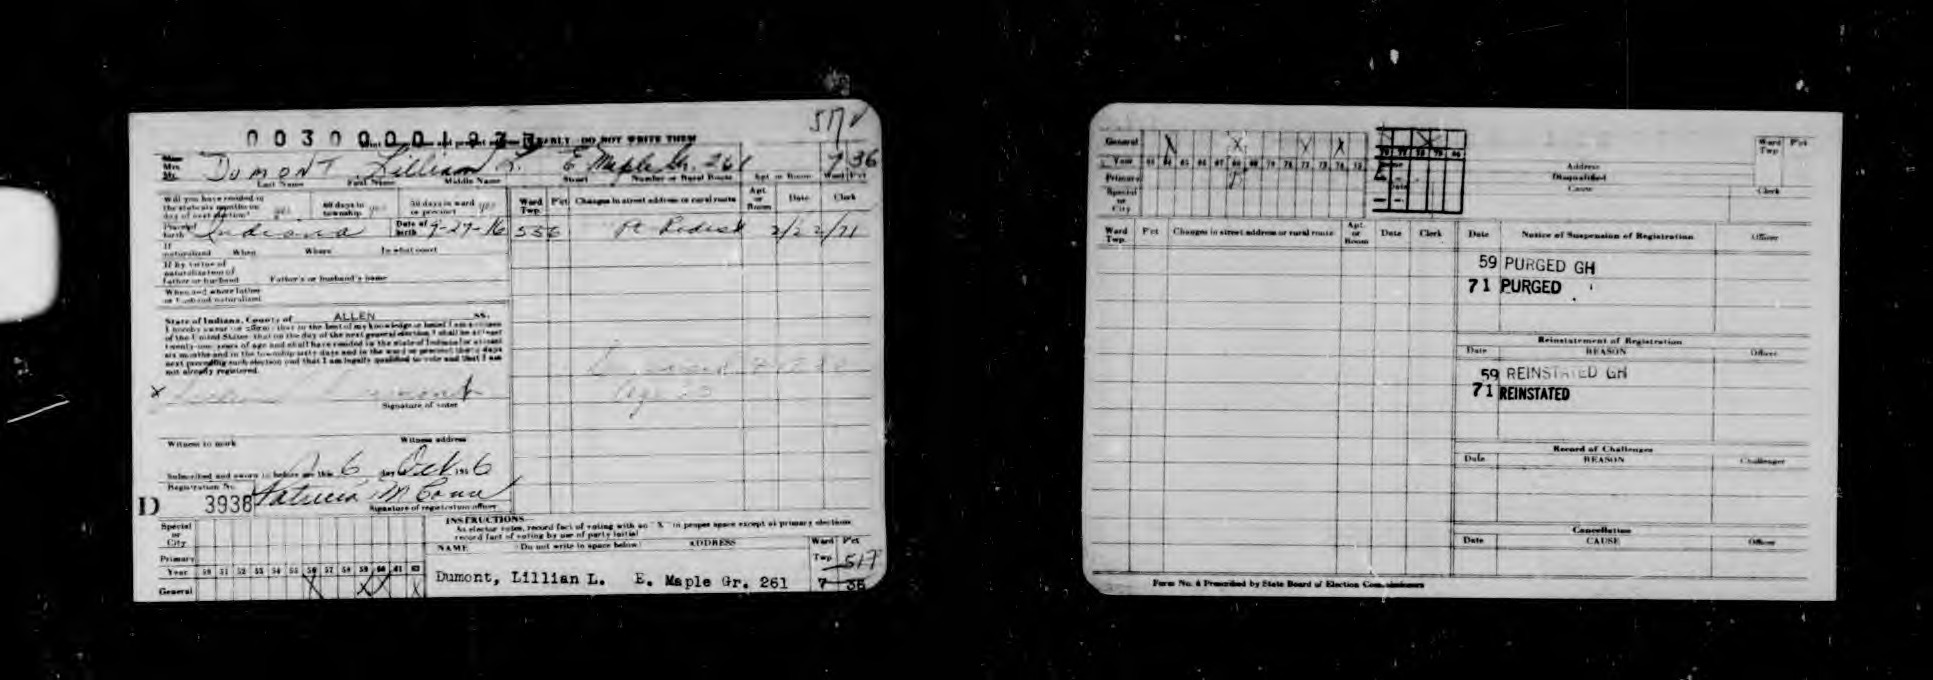 517
00300001977 EARLY DO NOT WRITE THEM
DUMONT Lillian L. E. Maple Gr. 261 7 36
Last Name First Name Middle Name Street Number or Rural Route Apt or Room Ward Pct
Will you have resided in the state six months on day of next election? yes 60 days in township yes 30 days in ward or precinct yes
Ward Twp. Pct Changes in street address or rural route Apt. or Room Date Clerk
Place of birth Indiana Date of birth 9-27-16 556 2/22/71
If naturalized When Where In what court
If by virtue of naturalization of father or husband Father's or husband's name
When and where father or husband naturalized
State of Indiana, County of ALLEN SS.
I hereby swear (or affirm) that to the best of my knowledge or belief I am a citizen
of the United States, that on the day of the next general election, I shall be at least
twenty-one years of age and shall have resided in the state of Indiana for at least
six months and in the township sixty days and in the ward or precinct thirty days
next preceding such election and that I am legally qualified to vote and that I am
not already registered.
x Lillian Dumont
Signature of voter
Witness to mark Witness address
Subscribed and sworn to before me this 6 day Oct 1956
Registration No.
D 3938 Patricia M
Signature of registration officer
INSTRUCTIONS
As elector votes, record fact of voting with an "X" in proper space except at primary elections,
record fact of voting by use of party initial
Special or City
Primary
Year 50 51 52 53 54 55 56 57 58 59 60 61 62
General X X X X
NAME (Do not write in space below) ADDRESS Ward Twp Pct
517
Dumont, Lillian L. E. Maple Gr. 261 7 36
General X X X X
Year 63 64 65 66 67 68 69 70 71 72 73 74 75
Primary
Special or City
Address
Disqualified
Cause Clerk
Ward Twp Pct
Ward Twp. Pct Changes in street address or rural route Apt. or Room Date Clerk
Date Notice of Suspension of Registration Officer
59 PURGED GH
71 PURGED
Reinstatement of Registration
Date REASON Officer
59 REINSTATED GH
71 REINSTATED
Record of Challenges
Date REASON Challenger
Cancellation
Date CAUSE Officer
Form No. 6 Prescribed by State Board of Election Commissioners